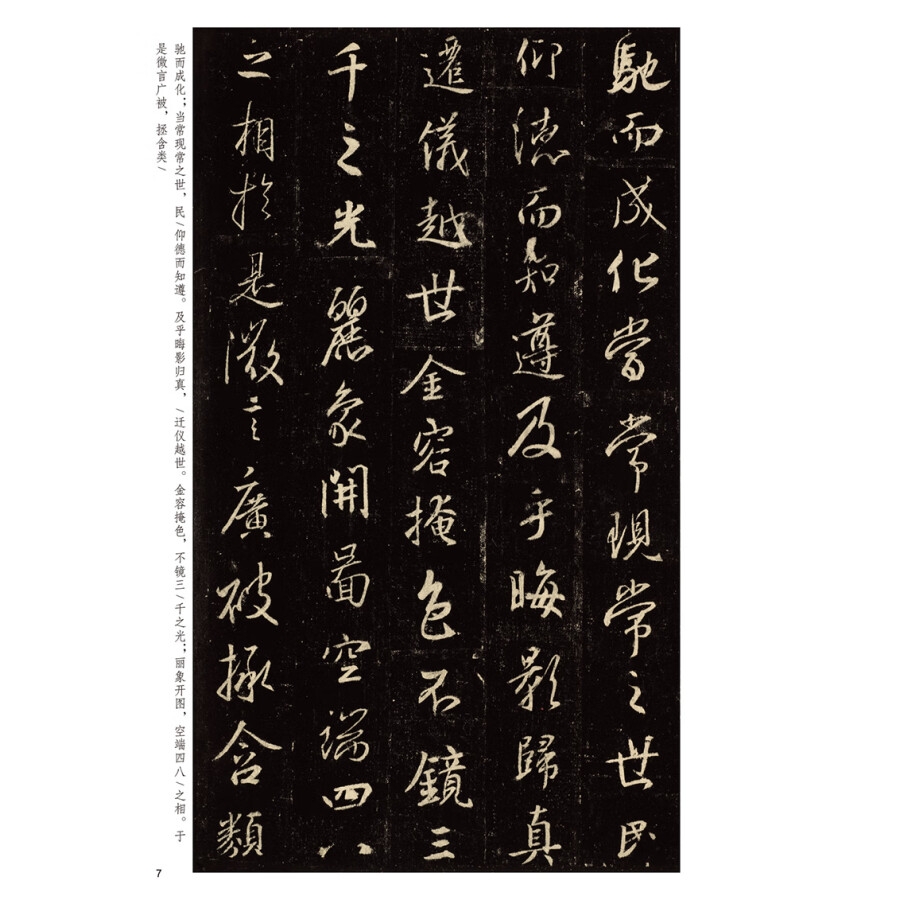 馳而成化當常現常之世民
仰德而知遵及乎晦影歸真
遷儀越世金容掩色不鏡三
千之光麗象開圖空端四八
之相於是微言廣被拯含類
驰而成化；当常现常之世，民/仰德而知遵。及乎晦影归真，/迁仪越世。金容掩色，不镜三/千之光；丽象开图，空端四八/之相。于
是微言广被，拯含类/
7